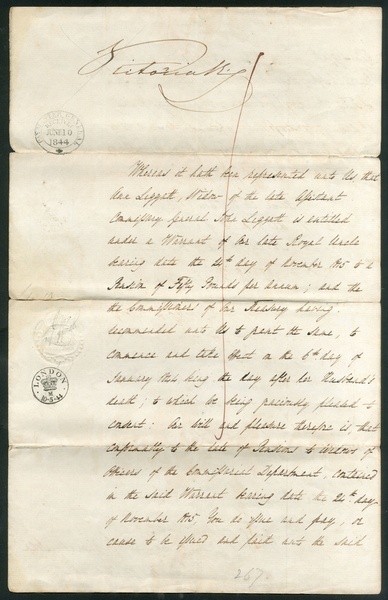 Victoria R
PAYMASTER GENERAL
JUNE 10
1844
Whereas it hath been represented unto Us that
Ann Leggatt, Widow of the late Assistant
Commissary General John Leggatt is entitled
under a Warrant of Our late Royal Uncle
bearing date the 24th day of November 1815 to a
Pension of Fifty Pounds per Annum; and the
the Commissioners of Our Treasury having
recommended unto Us to grant the same, to
commence and take effect on the 6th day of
January 1844 being the day after her Husband's
death; to which We being graciously pleased to
consent: Our will and pleasure therefore is that
conformably to the Rate of Pensions to Widows of
Officers of the Commissariat Department, contained
in the said Warrant bearing date the 24th day
of November 1815 You do issue and pay, or
cause to be issued and paid unto the said
LONDON
10-5-44
267